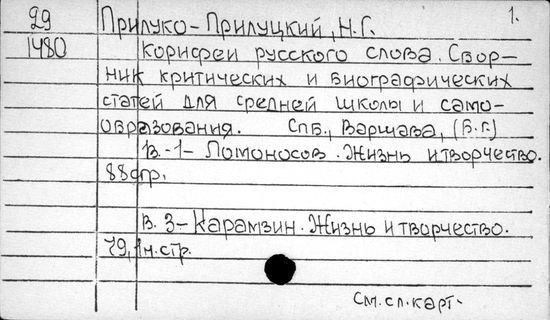 29 Прилуко-Прилуцкий, Н.Г. 1.
1480 Корифеи русского слова. Сбор-
ник критических и биографических
статей для средней школы и само-
образования. Спб., Варшава, (б.г.)
В.-1- Ломоносов. Жизнь и творчество.
88стр.
В. 3- Карамзин. Жизнь и творчество.
79,1н.стр.
См.сл.карт.